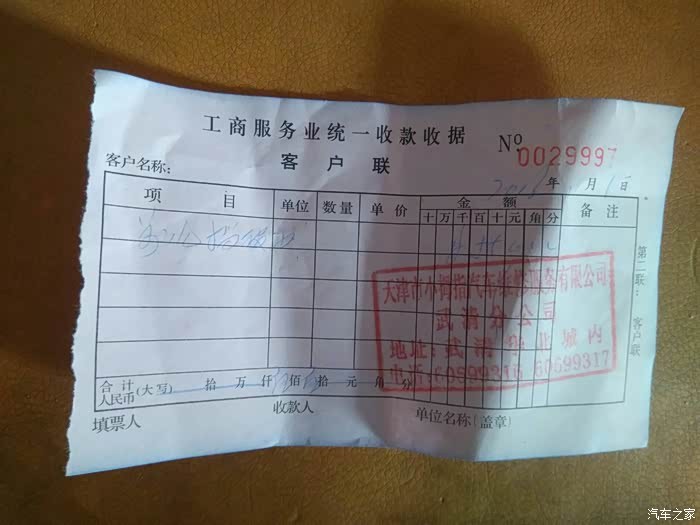 工商服务业统一收款收据
客户联
No 0029997
客户名称：
年 月 1 日
项目 单位 数量 单价 金额 备注
十万千百十元角分
天津市小拇指汽车维修服务有限公司
武清分公司
地址：武清 北城内
电话：60699316 60699317
第二联：客户联
合计人民币(大写) 拾 万 仟 佰 拾 元 角 分
填票人 收款人 单位名称(盖章)
汽车之家